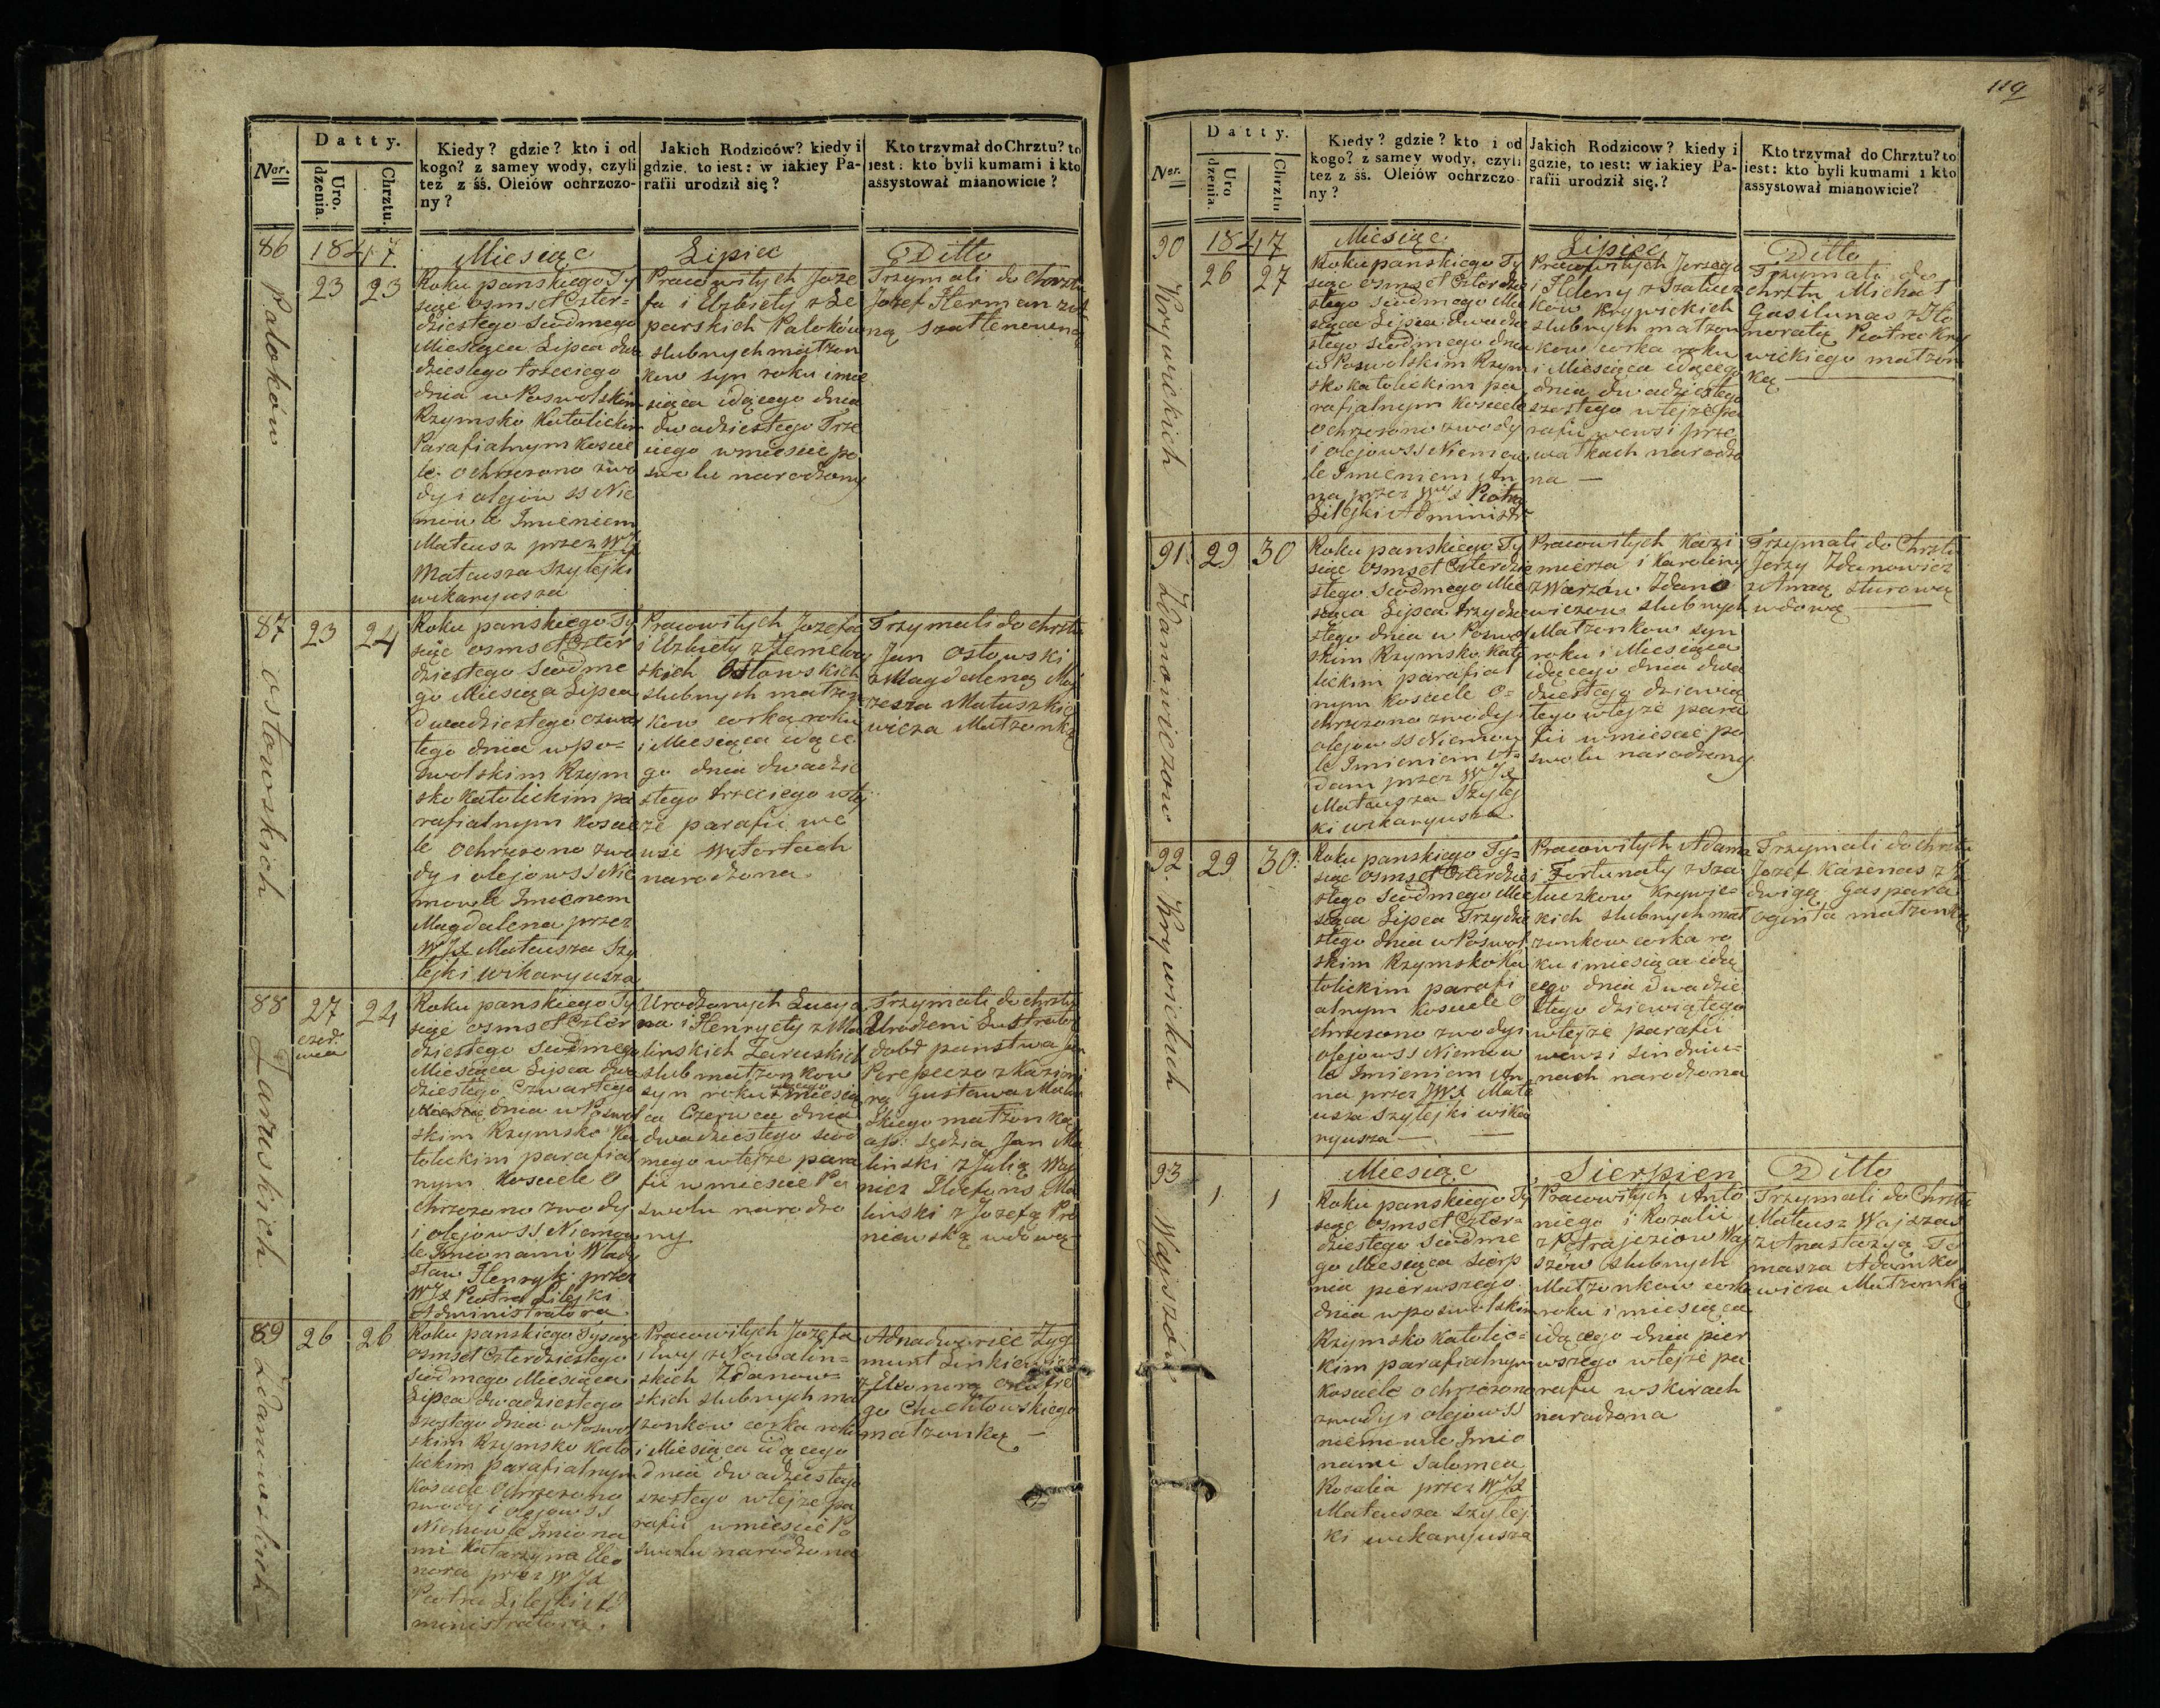 119
Datty.
Ner.
Uro.
dzenia.
Chrztu.
Kiedy? gdzie? kto i od
kogo? z samey wody, czyli
też z śś. Oleiów ochrzczo-
ny?
Jakich Rodziców? kiedy i
gdzie, to iest: w iakiey Pa-
rafii urodził się?
Kto trzymał do Chrztu? to
iest: kto byli kumami i kto
assystował mianowicie?
86
Paloków
1847
23 23
Miesiąc
Roku pańskiego Ty
siąc osmset czter=
dziestego siodmego
Miesiąca Lipca dwa
dziestego trzeciego
dnia w Poswolskim
Rzymsko Katolickim
Parafialnym koscie
le ochrzczono z wo
dy i olejów SS Nie
mowle Imieniem
Mateusz przez WJX
Mateusza Szylejki
wikaryusza
Lipiec
Pracowitych Joze
fa i Elzbiety z Le
parskich Paloków
slubnych małzon
kow syn roku i mie
siąca idącego dnia
dwadziestego Trze
ciego w miescie po
swolu narodzony
Ditto
Trzymali do chrztu
Jozef Herman z
ną Szatlenowną
87
Ostowskich
23 24
Roku pańskiego Ty
siąc osmset czter
dziestego siodme
go Miesiąca Lipca
dwadziestego czwar
tego dnia w po=
swolskim Rzym
sko katolickim pa
rafialnym koscie
le ochrzczono z wo
dy i olejow SS Nie
mowle Imieniem
Magdalena przez
WJX Mateusza Szy
lejki wikaryusza
Pracowitych Jozefa
i Elzbiety z Remelew
skich Ostowskich
slubnych małzon
kow corka roku
i Miesiąca idące
go dnia dwadzie
stego trzeciego w tej
ze parafii we
wsi
narodzona
Trzymali do chrztu
Jan Ostowski
z Magdaleną Moj
zesza Matuszkie
wicza Małzonką
88
Zaruskich
27 24
czer
wca
Roku pańskiego Ty
siąc osmset czter
dziestego siodmego
Miesiąca Lipca dwa
dziestego czwartego
dnia w Poswol
skim Rzymsko Ka
tolickim parafial
nym Kosciele O
chrzczono z wody
i olejow SS Niemow
le Imionami Wlady
sław Henryk przez
WJX Piotra Lilejki
Administratora
Urodzonych Lucya
na i Henryety z Ma
linskich Zaruskich
slub małzonkow
syn roku miesią
ca Czerwca dnia
dwadziestego siod
mego w tejze para
fii w miescie Po
swolu narodzo
ny
Trzymali do chrztu
Urodzeni Lustrator
dobr panstwa Jan
Perepeczo z Kazimi
rą Gustawa Malin
skiego małzonką
ass: sędzia Jan Ma
linski z Julią Way
nicz Ildefons Ma
linski z Jozefą Pro
niewską wdową
89
Zdanowskich
26 26
Roku pańskiego Tysiąc
osmset czterdziestego
siodmego Miesiąca
Lipca dwadziestego
szostego dnia w Poswol
skim Rzymsko Kato
lickim parafialnym
kosciele ochrzczono
z wody i olejow SS
Niemowle Imiona
mi Katarzyna Eleo
nora przez WJX
Piotra Lilejki Ad
ministratora.
Pracowitych Jozefa
i Ewy z Nowalin=
skich Zdanow=
skich slubnych ma
zonkow corka roku
i Miesiąca idącego
dnia dwadziestego
szostego w tejze pa
rafii w miescie Po
swolu narodzona
Adnadworiec Zyg
munt Linkiewicz
z Eleonorą
go Chochłowskiego
małzonką
Datty.
Ner.
Uro
dzenia.
Chrztu
Kiedy? gdzie? kto i od
kogo? z samey wody, czyli
też z śś. Oleiów ochrzczo-
ny?
Jakich Rodzicow? kiedy i
gdzie, to iest: w iakiey Pa-
rafii urodził się.?
Kto trzymał do Chrztu? to
iest: kto byli kumami i kto
assystował mianowicie?
90
Krywickich
1847
26 27
Miesiąc
Roku pańskiego Ty
siąc osmset czterdzie
stego siodmego Mie
siąca Lipca dwadzie
stego siodmego dnia
w Poswolskim Rzym
sko katolickim pa
rafialnym kosciele
ochrzczono z wody
i olejow SS Niemow
le Imieniem An
na przez WJX Piotra
Lilejki Administr
Lipiec
Pracowitych Jerzego
i Heleny z Szałucz
kow Krywickich
slubnych małzon
kow corka roku
i Miesiąca idącego
dnia dwadziestego
szostego w tejze pa
rafii we wsi prze
wałkach narodzo
na
Ditto
Trzymali do
chrztu Michał
Gasilunas z Ho
noratą Piotra Kry
wickiego małzon
ką
91
Zdanowiczow
29 30
Roku pańskiego Ty
siąc osmset czterdzie
stego siodmego Mie
siąca Lipca trzydzie
stego dnia w Poswol
skim Rzymsko Kato
lickim parafial
nym kosciele o=
chrzczono z wody i
olejow SS Niemow
le Imieniem A=
dam przez WJX
Mateusza Szylej
ki wikaryusza
Pracowitych Kazi
mierza i Karoliny
z Warzow Zdano
wiczow slubnych
Małzonkow syn
roku i Miesiąca
idącego dnia dwa
dziestego dziewią
tego w tejze para
fii w miescie po
swolu narodzony
Trzymali do Chrztu
Jerzy Zdanowicz
z Anną Sturową
wdową
92
Krywickich
29 30
Roku pańskiego Ty=
siąc osmset czterdzie
stego siodmego Mie
siąca Lipca Trzydzie
stego dnia w Poswol
skim Rzymsko Ka
tolickim parafi
alnym kosciele O
chrzczono z wody i
olejow SS Niemow
le Imieniem An
na przez JWX Mate
usza Szylejki wika
ryusza
Pracowitych Adama
i Fortunaty z Sza
łuczkow Krywic=
kich slubnych mał
zonkow corka ro
ku i miesiąca idą
cego dnia dwadzie
stego dziewiątego
w tejze parafii
we wsi Sindziu=
nach narodzona
Trzymali do chrztu
Jozef Kazenas z Ja
dwigą Gaspara
Oginta małzonką
93
Wajszów
1 1
Miesiąc
Roku pańskiego Ty
siąc osmset czter=
dziestego siodme
go Miesiąca Sierp
nia pierwszego
dnia w poswolskim
Rzymsko Katolic=
kim parafialnym
kosciele ochrzczono
z wody i olejow SS
niemowle Imio
nami Salomea
Rozalia przez WJX
Mateusza Szylej
ki wikaryusza
Sierpien
Pracowitych Anto
niego i Rozalii
z Petrajeziow Waj
szow slubnych
Małzonkow corka
roku i miesiąca
idącego dnia pier
wszego w tejze pa
rafii w skirach
narodzona
Ditto
Trzymali do Chrztu
Mateusz Wajszas
z Anastazyą To
masza Adamko
wicza Małzonką